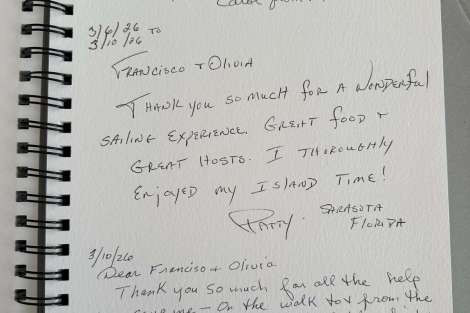 3/6/26 to
3/10/26
Francisco + Olivia
Thank you so much for a wonderful
sailing experience. Great food +
Great Hosts. I thoroughly
enjoyed my Island Time!
Patty. Sarasota
Florida
3/10/26
Dear Francisco + Olivia
Thank you so much for all the help
me — On the walk to + from the